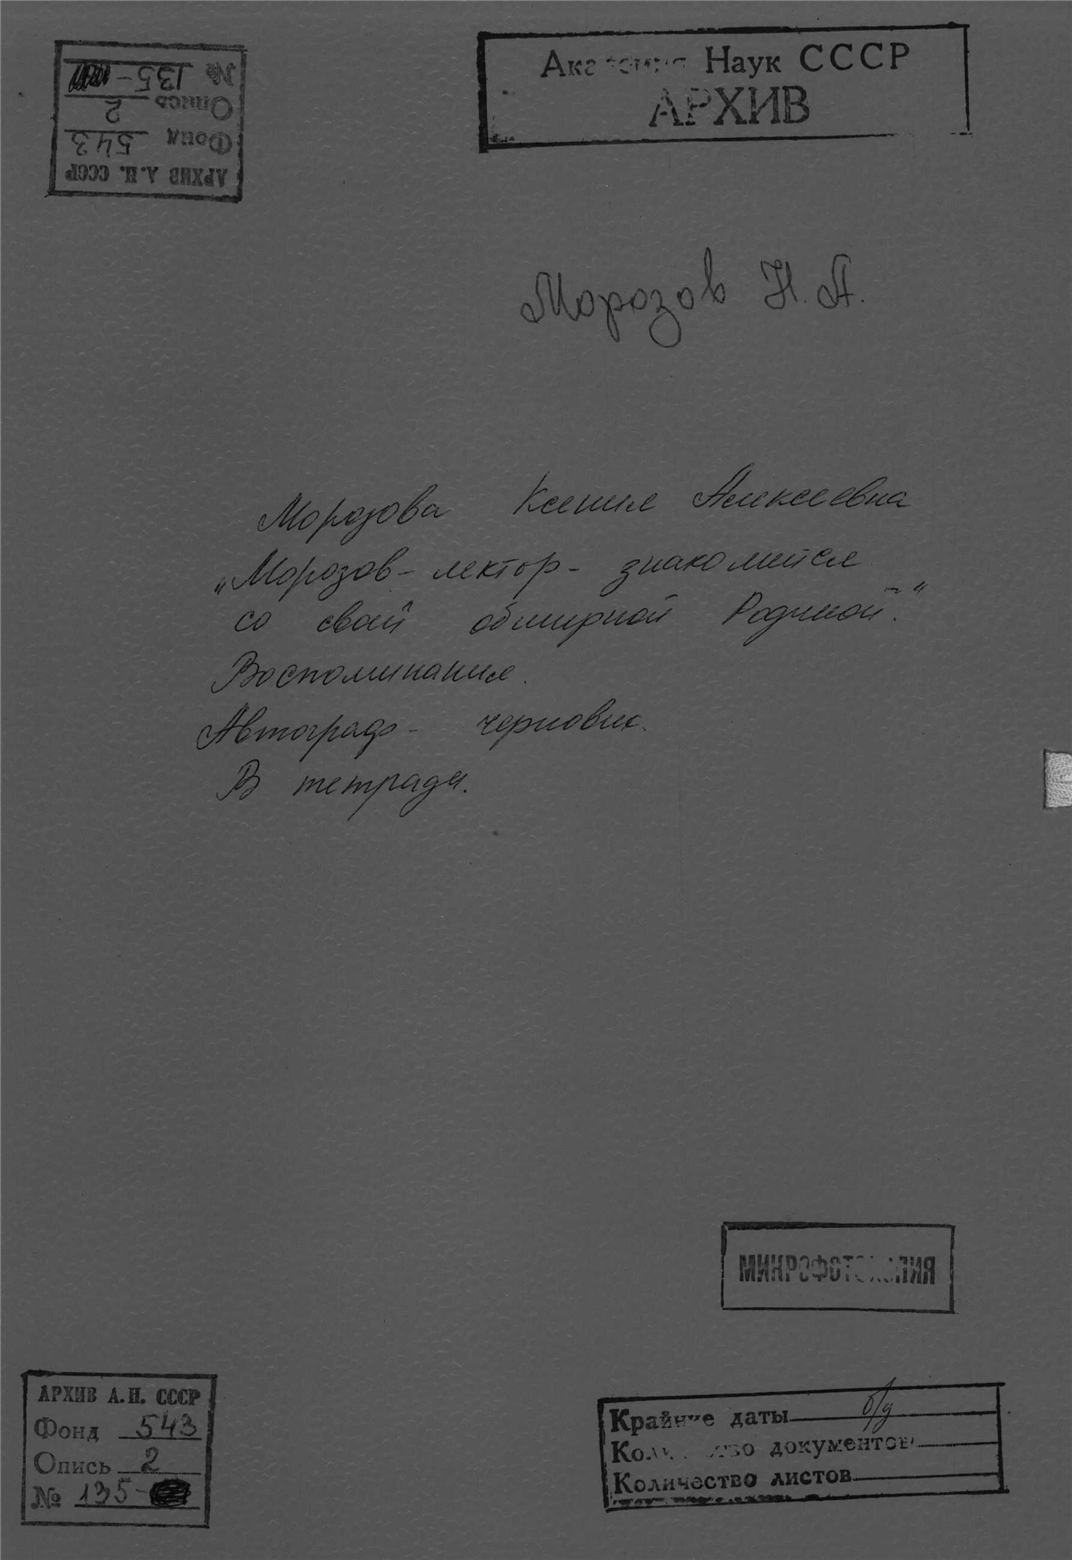 № 135-
Опись 2
Фонд 543
АРХИВ А.Н. СССР
Академия Наук СССР
АРХИВ
Морозов Н.А.
Морозова Ксения Алексеевна
„Морозов - лектор - знакомится
со свой обширной Родиной."
Воспоминания.
Автограф - черновик.
В тетради.
МИКРОФОТОКОПИЯ
АРХИВ А.Н. СССР
Фонд 543
Опись 2
№ 135-
Крайние даты б/д
Количество документов
Количество листов